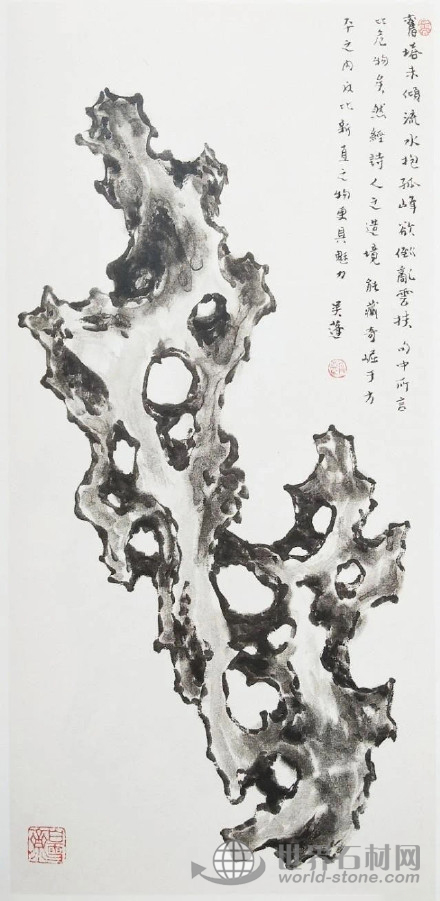 舊塔未傾流水抱孤峰欲倒亂雲扶句中所言
此危物矣然經詩人之造境能藏奇崛于方
寸之内反比新直之物更具魅力 吳蓬
世界石材网
world-stone.com